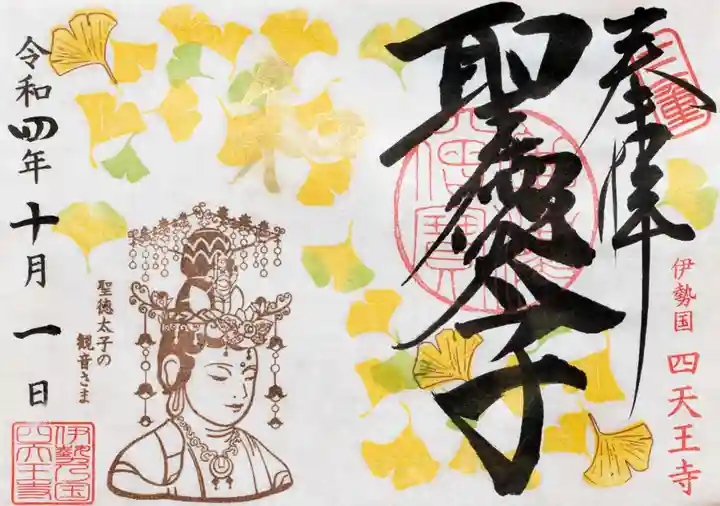 奉拝
三重
伊勢国 四天王寺
聖徳太子
和
聖徳太子の
観音さま
令和四年十月一日
伊勢乃国
四天王寺